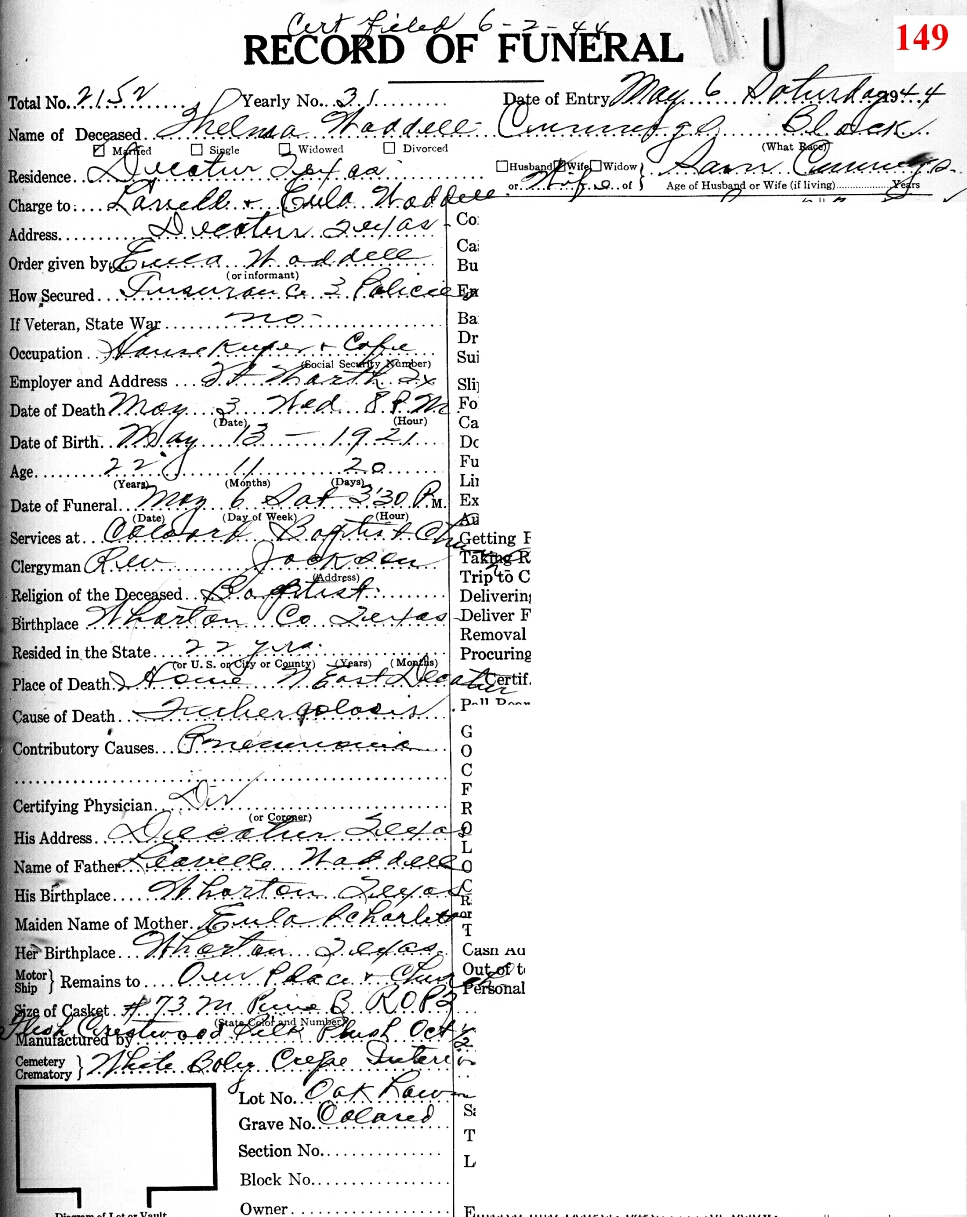 Cert filed 6-2-44
149
RECORD OF FUNERAL
Total No. 2152 Yearly No. 31 Date of Entry May 6 Saturday 1944
Name of Deceased Thelma Waddell Cummings Black
Married Single Widowed Divorced (What Race)
Residence Decatur Texas Husband Wife Widow or Wife of Sam Cummings
Age of Husband or Wife (if living) Years
Charge to: Larvell + Eula Waddell
Address Decatur Texas
Order given by Eula Waddell
(or informant)
How Secured Insurance 3 Policies
If Veteran, State War no
Occupation Housekeeper + Cafe
(Social Security Number)
Employer and Address Ft Worth Tx
Date of Death May 3 Wed 8 P.M.
(Date) (Hour)
Date of Birth May 13 - 1921
Age 22 11 20
(Years) (Months) (Days)
Date of Funeral May 6 Sat 3:30 P.M.
(Date) (Day of Week) (Hour)
Services at Colored Baptist Ch
Clergyman Rev Jackson
(Address)
Religion of the Deceased Baptist
Birthplace Wharton Co Texas
Resided in the State 22 yrs.
(or U. S. or City or County) (Years) (Months)
Place of Death Home N East Decatur
Cause of Death Tuberculosis
Contributory Causes Pneumonia
Certifying Physician
(or Coroner)
His Address Decatur Texas
Name of Father Leavelle Waddell
His Birthplace Wharton Texas
Maiden Name of Mother Eula
Her Birthplace Wharton Texas
Motor Ship } Remains to Our Place + Church
Size of Casket #73 M Pine B
(State Color and Number)
Flesh Crestwood Silk Plush Oct
Manufactured by
Cemetery Crematory } White Crepe Interior
Lot No. Oak Lawn
Grave No. Colored
Section No.
Block No.
Owner
Diagram of Lot or Vault
Co
Ca
Bu
Ba
Dr
Sui
Sli
Fo
Ca
Do
Fu
Li
Ex
Au
Getting
Taking R
Trip to C
Delivering
Deliver F
Removal
Procuring
Certif.
G
O
C
F
R
O
L
O
C
R
or
T
Out of t
Personal
Sa
T
L
E